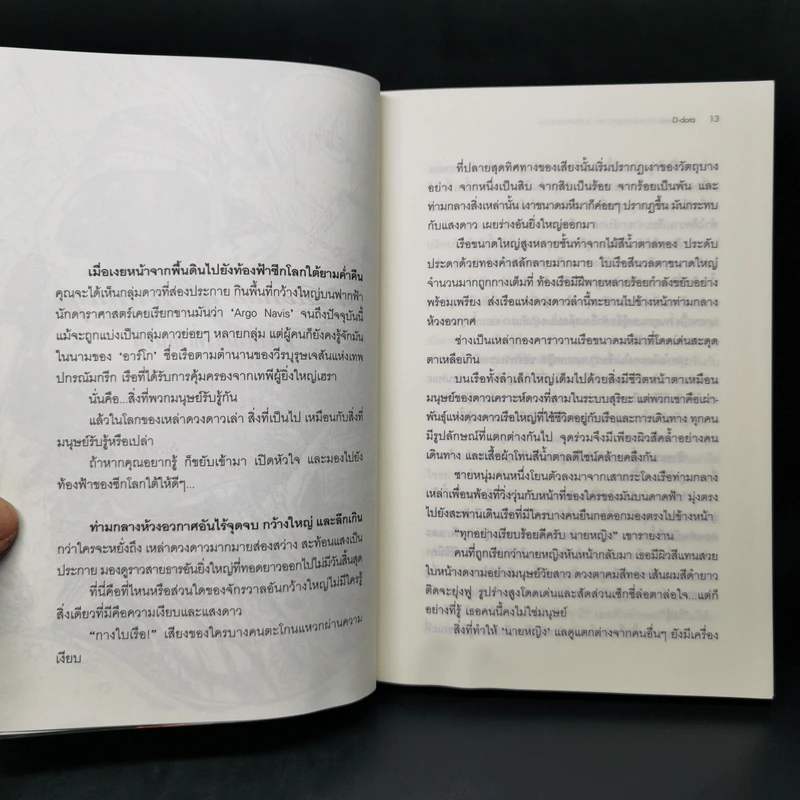 เมื่อเงยหน้าจากพื้นดินไปยังท้องฟ้าซีกโลกใต้ยามค่ำคืน
คุณจะได้เห็นกลุ่มดาวที่ส่องประกาย กินพื้นที่กว้างใหญ่บนฟากฟ้า
นักดาราศาสตร์เคยเรียกขานมันว่า ‘Argo Navis’ จนถึงปัจจุบันนี้
แม้จะถูกแบ่งเป็นกลุ่มดาวย่อยๆ หลายกลุ่ม แต่ผู้คนก็ยังคงรู้จักมัน
ในนามของ ‘อาร์โก’ ชื่อเรือตามตำนานของวีรบุรุษเจสันแห่งเทพ
ปกรณัมกรีก เรือที่ได้รับการคุ้มครองจากเทพีผู้ยิ่งใหญ่เฮรา
นั่นคือ...สิ่งที่พวกมนุษย์รับรู้กัน
แล้วในโลกของเหล่าดวงดาวเล่า สิ่งที่เป็นไป เหมือนกับสิ่งที่
มนุษย์รับรู้หรือเปล่า
ถ้าหากคุณอยากรู้ ก็ขยับเข้ามา เปิดหัวใจ และมองไปยัง
ท้องฟ้าของซีกโลกใต้ให้ดีๆ...
ท่ามกลางห้วงอวกาศอันไร้จุดจบ กว้างใหญ่ และลึกเกิน
กว่าใครจะหยั่งถึง เหล่าดวงดาวมากมายส่องสว่าง สะท้อนแสงเป็น
ประกาย มองดูราวสายธารอันยิ่งใหญ่ที่ทอดยาวออกไปไม่มีวันสิ้นสุด
ที่นี่คือที่ไหนหรือส่วนใดของจักรวาลอันกว้างใหญ่ไม่มีใครรู้
สิ่งเดียวที่มีคือความเงียบและแสงดาว
“กางใบเรือ!” เสียงของใครบางคนตะโกนแหวกผ่านความ
เงียบ
D-dora 13
ที่ปลายสุดทิศทางของเสียงนั้นเริ่มปรากฏเงาของวัตถุบาง
อย่าง จากหนึ่งเป็นสิบ จากสิบเป็นร้อย จากร้อยเป็นพัน และ
ท่ามกลางสิ่งเหล่านั้น เงาขนาดมหึมาก็ค่อยๆ ปรากฏขึ้น มันกระทบ
กับแสงดาว เผยร่างอันยิ่งใหญ่ออกมา
เรือขนาดใหญ่สูงหลายชั้นทำจากไม้สีน้ำตาลทอง ประดับ
ประดาด้วยทองคำสลักลายมากมาย ใบเรือสีนวลตาขนาดใหญ่
จำนวนมากถูกกางเต็มที่ ท้องเรือมีฝีพายหลายร้อยกำลังขยับอย่าง
พร้อมเพรียง ส่งเรือแห่งดวงดาวลำนี้ทะยานไปข้างหน้าท่ามกลาง
ห้วงอวกาศ
ช่างเป็นเหล่ากองคาราวานเรือขนาดมหึมาที่โดดเด่นสะดุด
ตาเหลือเกิน
บนเรือทั้งลำเล็กใหญ่เต็มไปด้วยสิ่งมีชีวิตหน้าตาเหมือน
มนุษย์ของดาวเคราะห์ดวงที่สามในระบบสุริยะ แต่พวกเขาคือเผ่า-
พันธุ์แห่งดวงดาวเรือใหญ่ที่ใช้ชีวิตอยู่กับเรือและการเดินทาง ทุกคน
มีรูปลักษณ์ที่แตกต่างกันไป จุดร่วมจึงมีเพียงผิวสีคล้ำอย่างคน
เดินทาง และเสื้อผ้าโทนสีน้ำตาลดีไซน์คล้ายคลึงกัน
ชายหนุ่มคนหนึ่งโยนตัวลงมาจากเสากระโดงเรือท่ามกลาง
เหล่าเพื่อนพ้องที่วิ่งวุ่นกับหน้าที่ของใครของมันบนดาดฟ้า มุ่งตรง
ไปยังสะพานเดินเรือที่มีใครบางคนยืนกอดอกมองตรงไปข้างหน้า
“ทุกอย่างเรียบร้อยดีครับ นายหญิง” เขารายงาน
คนที่ถูกเรียกว่านายหญิงหันหน้ากลับมา เธอมีผิวสีแทนสวย
ใบหน้างดงามอย่างมนุษย์วัยสาว ดวงตาคมสีทอง เส้นผมสีดำยาว
ติดจะยุ่งฟู รูปร่างสูงโดดเด่นและสัดส่วนเซ็กซี่ล่อตาล่อใจ...แต่ก็
อย่างที่รู้ เธอคนนี้คงไม่ใช่มนุษย์
สิ่งที่ทำให้ ‘นายหญิง’ แลดูแตกต่างจากคนอื่นๆ ยังมีเครื่อง